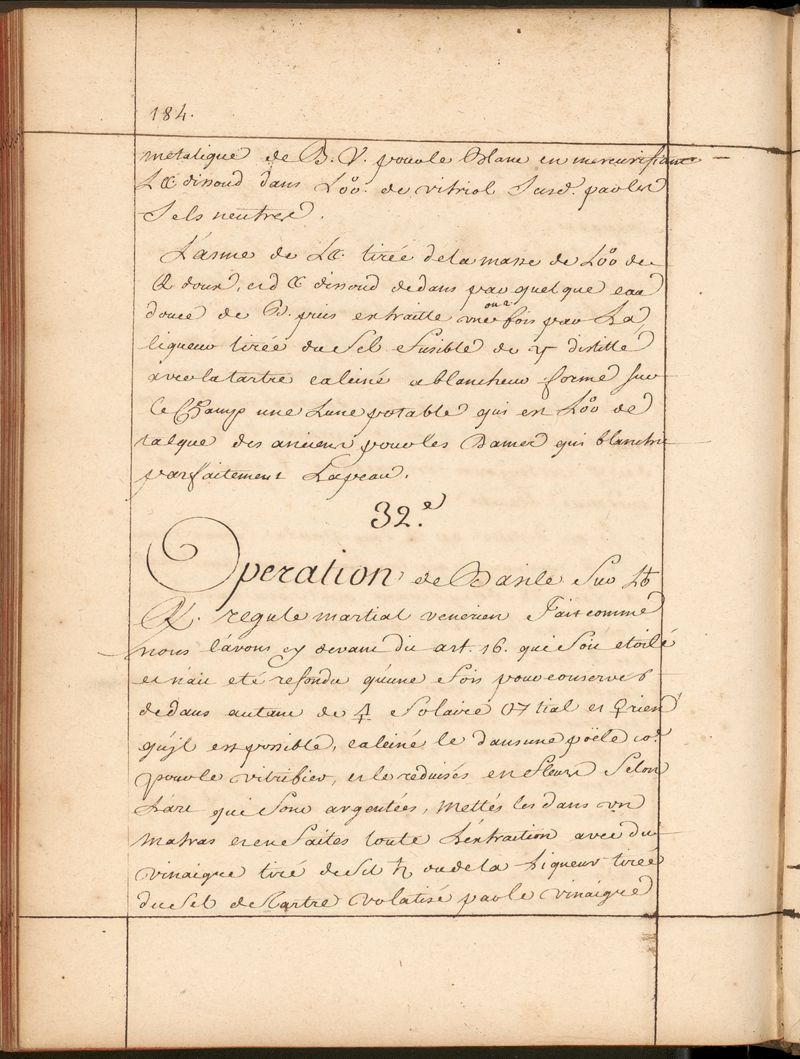 184.
metalique de B. V. pour le Blanc en mercurifiant
dissoud dans de vitriol par les
Sels neutres.
L'asme de tirée de la masse de de
doux, et dissoud dedans par quelque eau
douce de puis extraitte une ou 2 fois par La
liqueur tirée du Sel fusible de distillé
avec la tartre calciné a blancheur forme sur
le Champ une Lune potable qui est de
talque des anciens pour les Dames qui blanchit
parfaitement La peau.
32.e
Operation de Basile Sur
regule martial venerien Fait comme
nous l'avons cy devant dit art. 16. qui Soit etoilé
et n'ait eté refondu qu'une fois pour conserver
dedans autant de 🜍 Solaire ♂tial et ♀rien
qu'il est possible, calciné le dans une poële co.e
pour le vitrifier, et le reduisés en fleurs Selon
L'art qui Sont argentées, Mettés les dans un
Matras et en faites toute L'extraition avec du
vinaigre tiré du Sel ♄ ou de la Liqueur tirée
du Sel de Tartre volatisé par le vinaigre